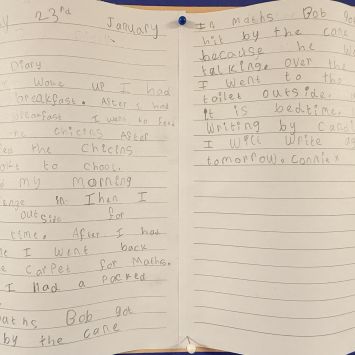 23rd January
Diary
Woke up I had
breakfast. After I had
breakfast I went to feed
the chicins After
the chicins
to chool.
my morning
in Then I
outside for
time. After I had
I went back
carpet for Maths.
I Had a Packed
Maths Bob got
by the cane
In maths Bob go
hit by the cane
because he w
talking over the
I went to the
toilet outside.
it is bedtime.
writing by candl
I will write ag
tomorrow. Connie x